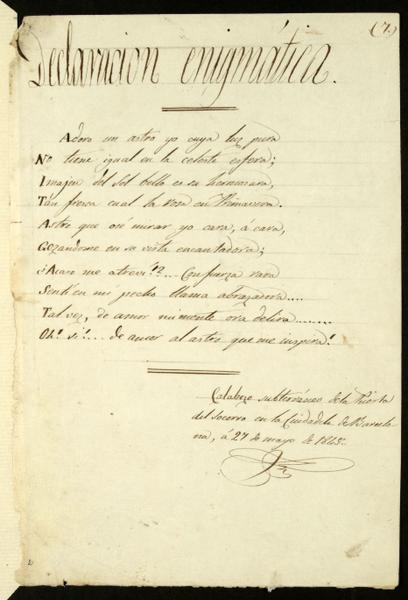 (7.)
Declaracion enigmática.
Adoro un astro yo cuya luz pura
No tiene igual en la celeste esfera;
Imajen del Sol bello es su hermosura,
Tan fresca cual la rosa en Primavera.
Astro que osé mirar yo cara, á cara,
Gozandome en su vista encantadora;
¿Acaso me atreví?... Con fuerza rara
Sentí en mi pecho llama abrazadora....
Tal vez, de amor mi mente ora delira........
Oh! si!.... de amar al astro que me inspira!
Calabozo subterráneo de la Puerta
del Socorro en la Ciudadela de Barcelo-
na, á 27 de mayo de 1845.